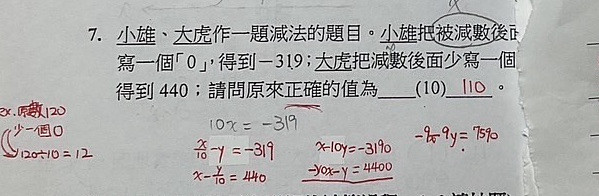 7. 小雄、大虎作一題減法的題目。小雄把被減數後面
寫一個「0」,得到-319;大虎把減數後面少寫一個
得到 440;請問原來正確的值為 (10) 110 。
ex. 原數120
少一個0
120÷10=12
10x = -319
x/10 - y = -319
x - y/10 = 440
x-10y=-3190
-)10x-y=4400
-9x-9y=7590